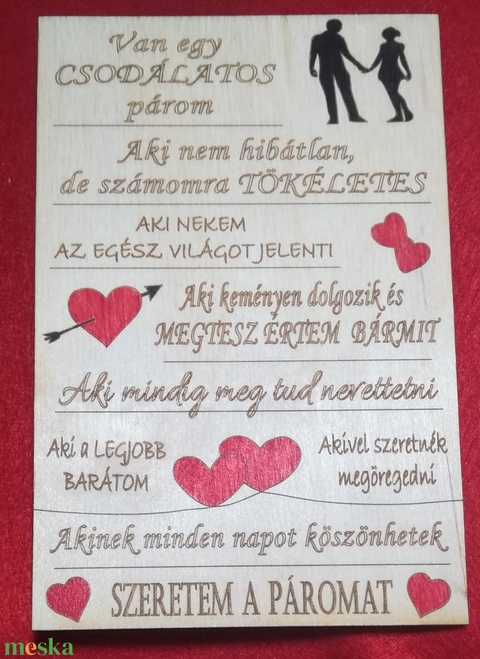 Van egy
CSODÁLATOS
párom
Aki nem hibátlan,
de számomra TÖKÉLETES
AKI NEKEM
AZ EGÉSZ VILÁGOT JELENTI
Aki keményen dolgozik és
MEGTESZ ÉRTEM BÁRMIT
Aki mindig meg tud nevettetni
Aki a LEGJOBB
BARÁTOM
Akivel szeretnék
megöregedni
Akinek minden napot köszönhetek
SZERETEM A PÁROMAT
meska